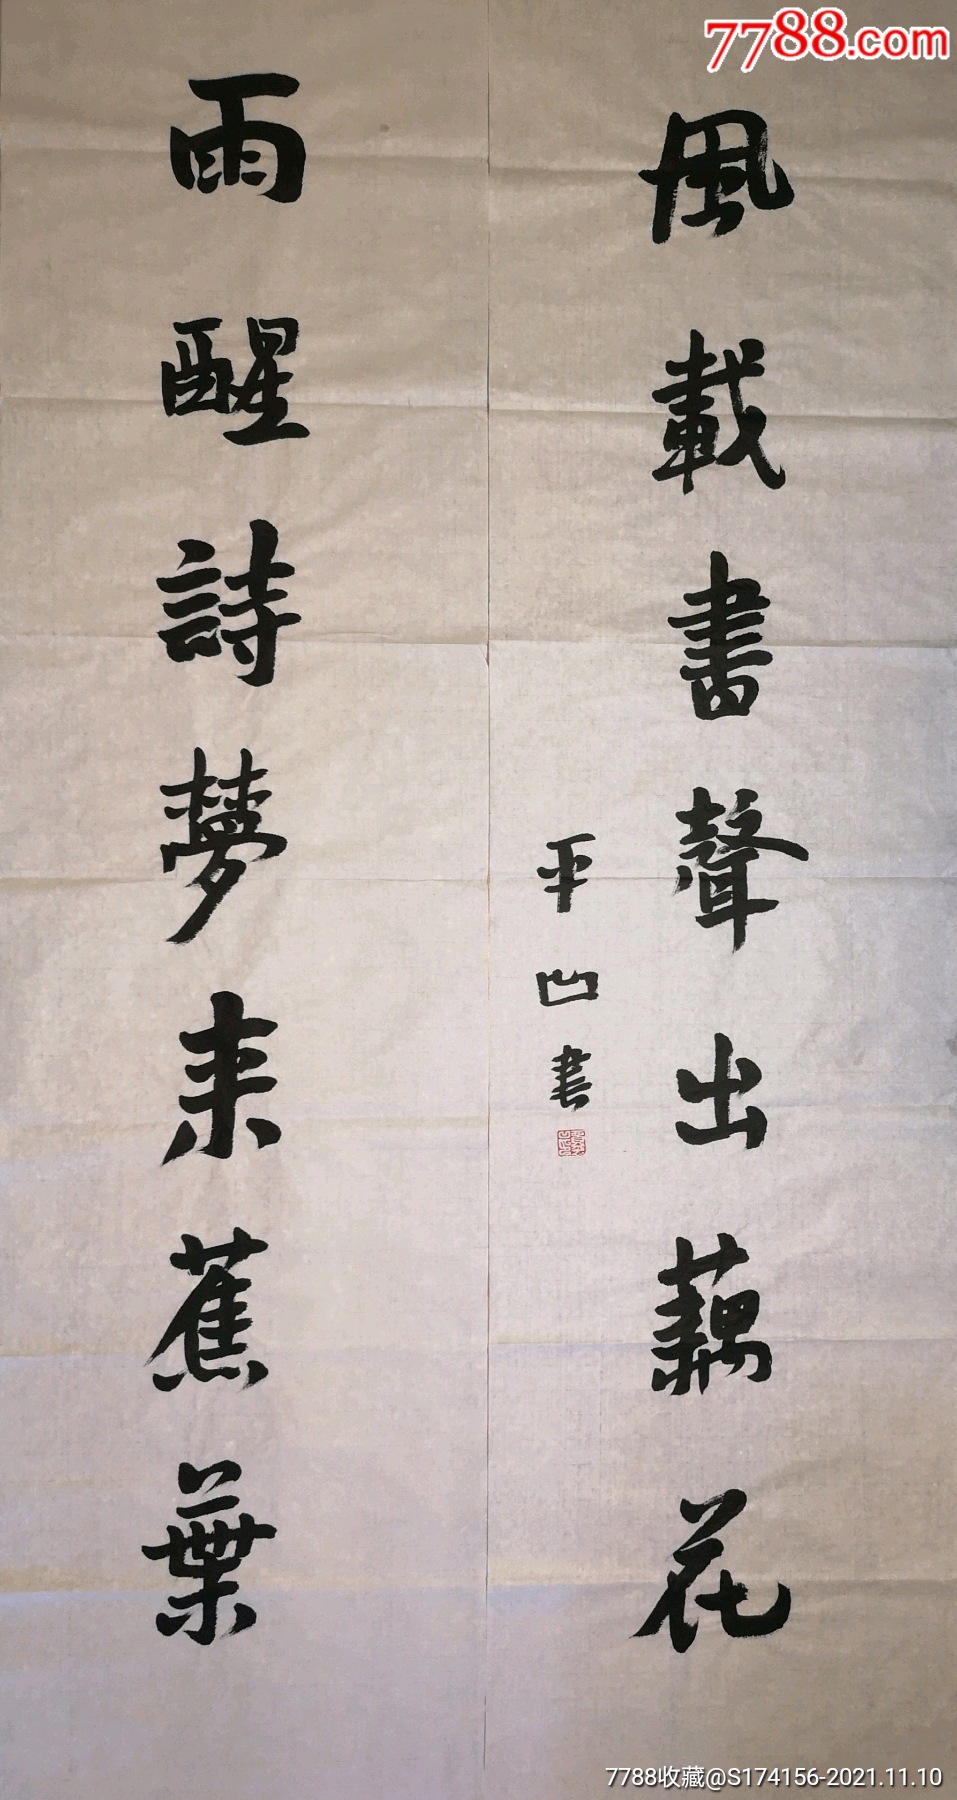 7788.com
風載書聲出藕花
平凹書
雨醒詩夢来蕉葉
7788收藏@S174156-2021.11.10